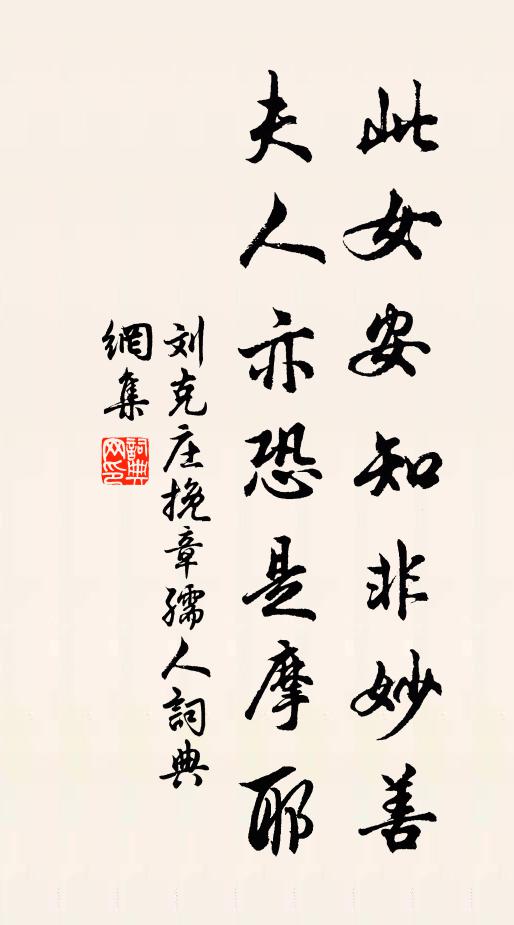 此女安知非妙善
夫人亦恐是摩耶
刘克庄挽章孺人詞典
網集
詞典網印